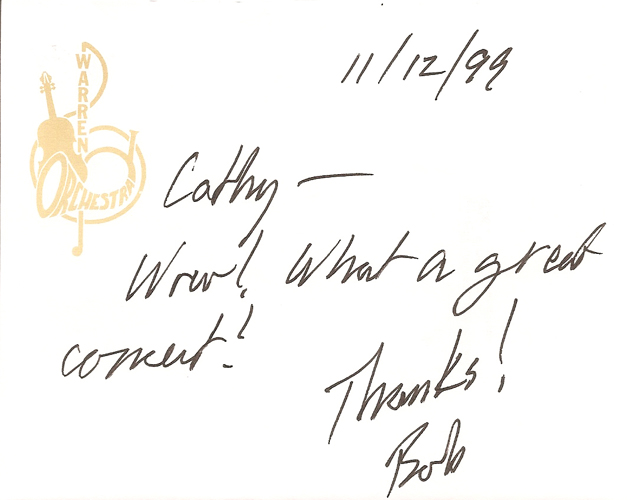 WARREN
ORCHESTRA
11/12/99
Cathy —
Wow! What a great
concert!
Thanks!
Bob